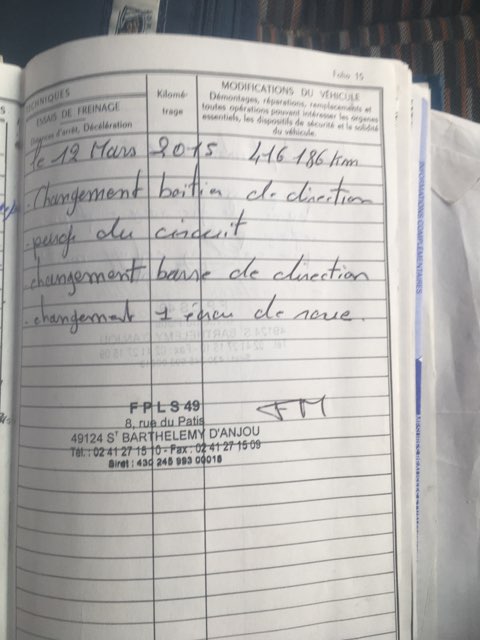 Folio 15
TECHNIQUES
ESSAIS DE FREINAGE
Distances d'arrêt, Décélération
Kilomé-
trage
MODIFICATIONS DU VÉHICULE
Démontages, réparations, remplacements et
toutes opérations pouvant intéresser les organes
essentiels, les dispositifs de sécurité et la solidité
du véhicule.
le 12 Mars 2015 416 186 Km
. Changement boitier de direction
. purge du circuit
changement barre de direction
. changement 1 écrou de roue.
FM
F P L S 49
8, rue du Patis
49124 ST BARTHELEMY D'ANJOU
Tél. : 02 41 27 15 10 - Fax : 02 41 27 15 09
Siret : 430 245 993 00015
INFORMATIONS COMPLÉMENTAIRES